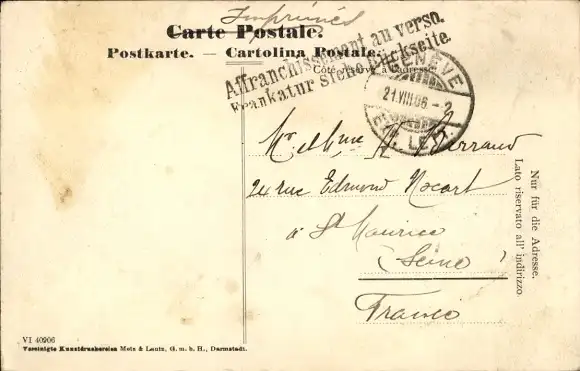 Imprimés
Carte Postale.
Postkarte. — Cartolina Postale.
Côté réservé à l'adresse.
Affranchissement au verso.
Frankatur siehe Rückseite.
GENÈVE
21.VIII.06 - 2
EXP. LET.
Mr et Mme
24 rue Edmond Nocart
à St Maurice
(Seine)
France
Nur für die Adresse.
Lato riservato all' indirizzo
VI 40906
Vereinigte Kunstdruckereien Metz & Lautz, G. m. b. H., Darmstadt.